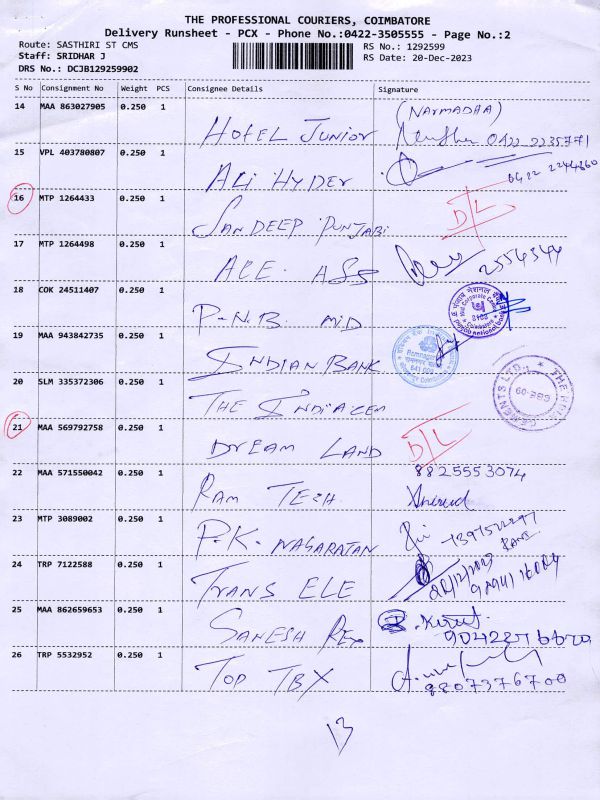 THE PROFESSIONAL COURIERS, COIMBATORE
Delivery Runsheet - PCX - Phone No.:0422-3505555 - Page No.:2
Route: SASTHIRI ST CMS
RS No.: 1292599
Staff: SRIDHAR J
RS Date: 20-Dec-2023
DRS No.: DCJB129259902
S No Consignment No Weight PCS Consignee Details Signature
14 MAA 863027905 0.250 1 HOTEL JUNIOR (NARMADAA) 0422 2235771
15 VPL 403780807 0.250 1 ALI HYDER 0422 2244860
16 MTP 1264433 0.250 1 SANDEEP PUNJABI D/L
17 MTP 1264498 0.250 1 ACE ASS 2554344
18 COK 24511407 0.250 1 P.N.B. MID
19 MAA 943842735 0.250 1 INDIAN BANK
20 SLM 335372306 0.250 1 THE INDIACEM
CEMENTS LTD.
21 MAA 569792758 0.250 1 DREAM LAND D/L
22 MAA 571550042 0.250 1 RAM TECH 8825553074
23 MTP 3089002 0.250 1 P.K. NAGARATAN
24 TRP 7122588 0.250 1 TRANS ELE 20/12/2023
25 MAA 862659653 0.250 1 SANESH REX
26 TRP 5532952 0.250 1 TOP TBX 9807376700
13